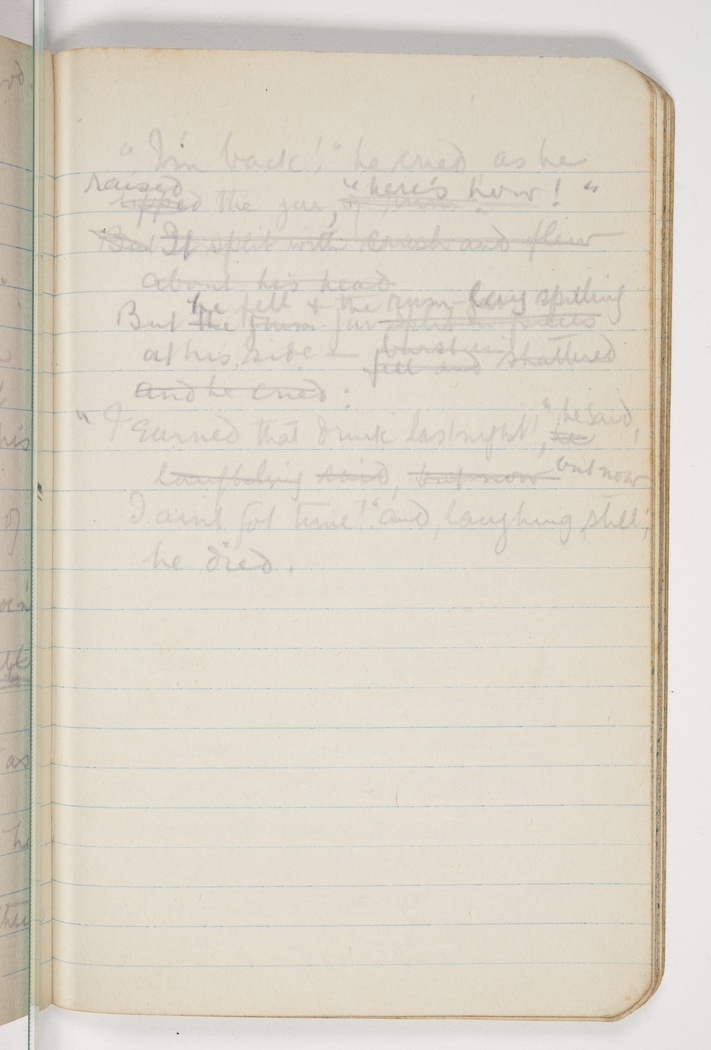 "I'm back!" he cried as he
raised "here's how!"
tipped the jar, of rum.
But It split with crash and flew
about his head
he fell & the rum lay spilling
But the rum jar split in pieces
at his side — burst in shattered
fell and
and he cried:
"I earned that drink last night!," he said,
he
laughing said, but now but now
I aint got time!" and, laughing still,
he died.